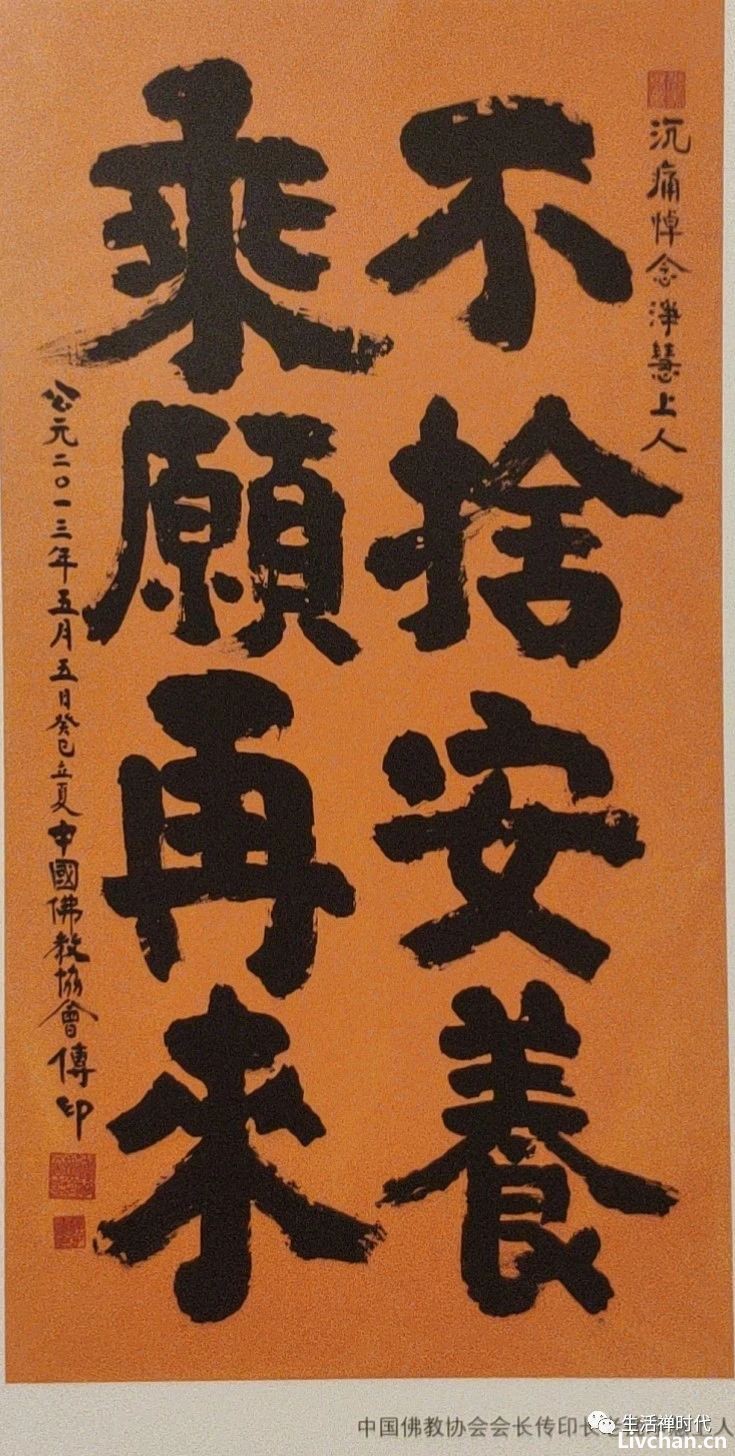 沉痛悼念淨慧上人
不捨安養
乘願再來
公元二〇一三年五月五日癸巳立夏中國佛教協會傳印
中国佛教协会会长传印长
人
生活禅时代
Livchan.cn